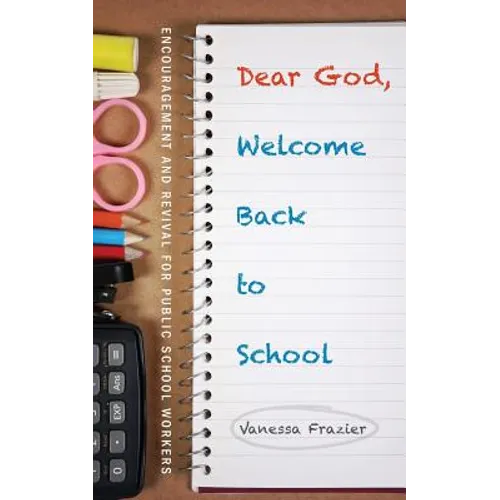 Dear God,
Welcome
Back
to
School
Vanessa Frazier
ENCOURAGEMENT AND REVIVAL FOR PUBLIC SCHOOL WORKERS
=
Ans
EXP
.
0